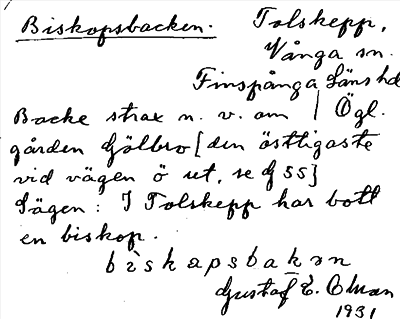 Biskopsbacken. Tolskepp,
Vånga sn.
Finspånga läns hd
Backe strax n. v. om | Ögl.
gården Gölbro [den östligaste
vid vägen ö ut, se GSS]
Sägen: I Tolskepp har bott
en biskop.
bìskapsbakən
Gustaf E. Olman
1931